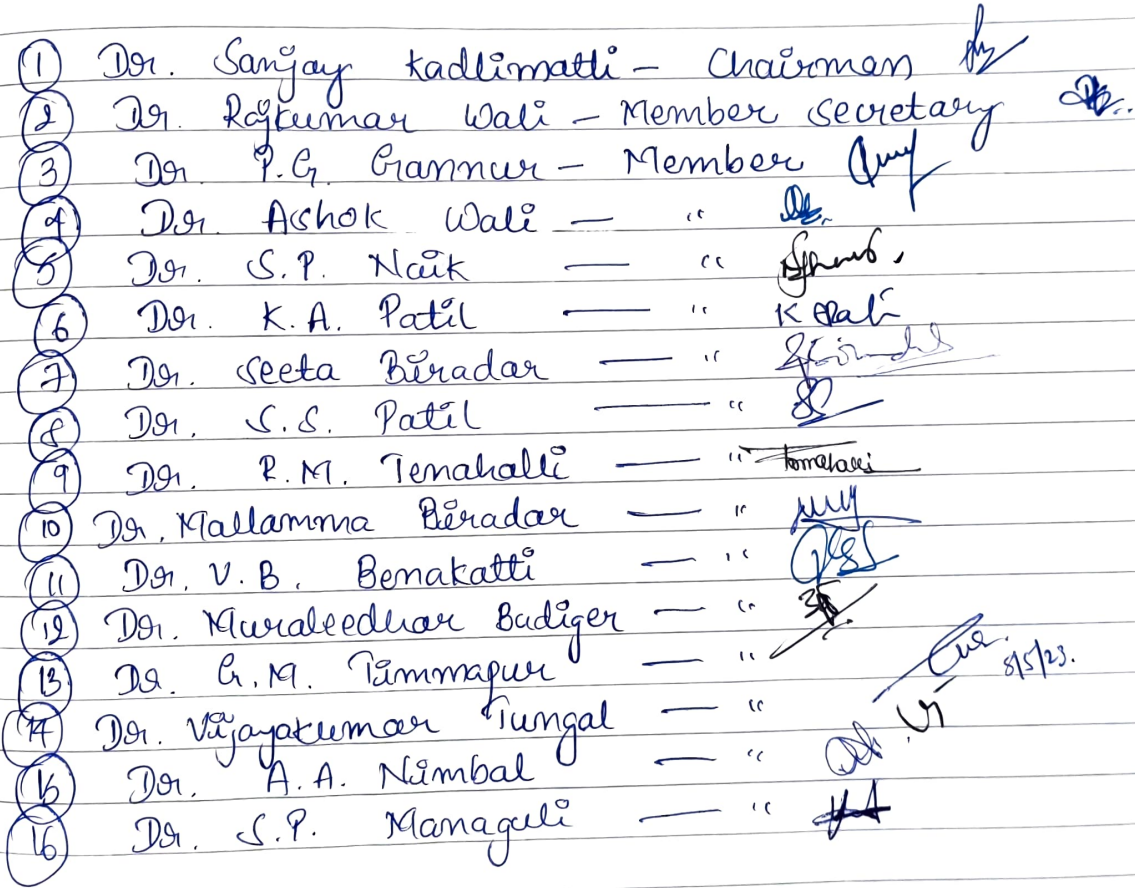 1 Dr. Sanjay Kadlimatti – Chairman
2 Dr. Rajkumar Wali – Member Secretary
3 Dr. P.G. Gannur – Member
4 Dr. Ashok Wali — "
5 Dr. S.P. Naik — "
6 Dr. K.A. Patil — " K Patil
7 Dr. Seeta Biradar — "
8 Dr. S.S. Patil — "
9 Dr. R.M. Tenahalli — " Tenahalli
10 Dr. Mallamma Biradar — "
11 Dr. V.B. Benakatti — "
12 Dr. Muraleedhar Badiger — "
13 Dr. G.M. Timmapur — " 8/5/23.
14 Dr. Vijayakumar Tungal — "
15 Dr. A.A. Nimbal — "
16 Dr. S.P. Managuli — "